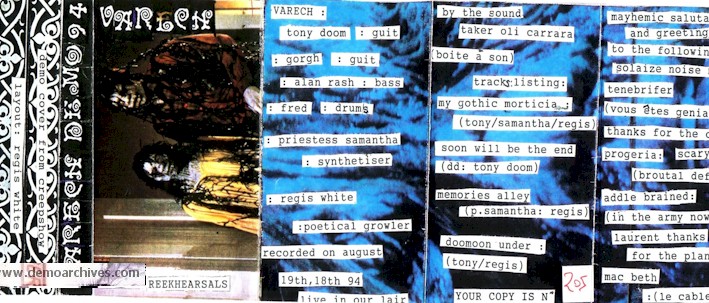 VARECH DEMO 94
demo cover from creepshow
layout: regis white
VARECH
www.demoarchives.com
REEKHEARSALS
VARECH :
tony doom : guit
: gorgh : guit
: alan rash : bass
: fred : drums
: priestess samantha
: synthetiser
: regis white
:poetical growler
recorded on august
19th,18th 94
live in our lair
by the sound
taker oli carrara
(boite à son)
tracks listing:
my gothic morticia
(tony/samantha/regis)
soon will be the end
(dd: tony doom)
memories alley
(p.samantha: regis)
doomoon under :
(tony/regis)
YOUR COPY IS N°
205
mayhemic saluta
and greeting
to the followin
solaize noise
tenebrifer
(vous êtes genia
thanks for the c
progeria: scary
(broutal def
addle brained:
(in the army now
laurent thanks
for the plan
mac beth
(le cable